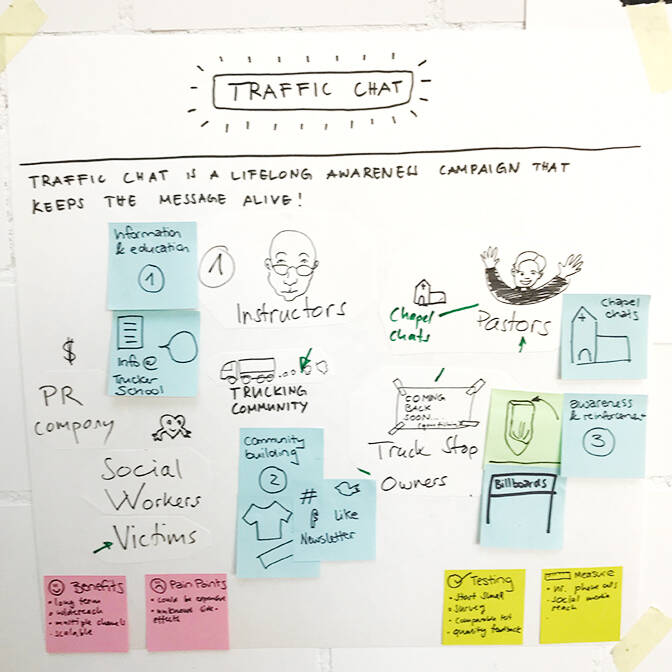 TRAFFIC CHAT
TRAFFIC CHAT IS A LIFELONG AWARENESS CAMPAIGN THAT
KEEPS THE MESSAGE ALIVE!
Information
& education
1
1
Instructors
Chapel
chats
Pastors
Chapel
chats
Info @
Trucker
School
$
PR
company
TRUCKING
COMMUNITY
COMING
BACK
SOON...
Truck Stop
Owners
awareness
& reinforcement
3
Billboards
Social
Workers
Victims
Community
building
2
#
Like
Newsletter
Benefits
• long term
• widereach
• multiple channels
• scalable
Pain Points
• could be expensive
• unknown side-
effects
Testing
• Start Small
• Survey
• Comparable test
• quality feedback
Measure
• Nr. phone calls
• social media
reach